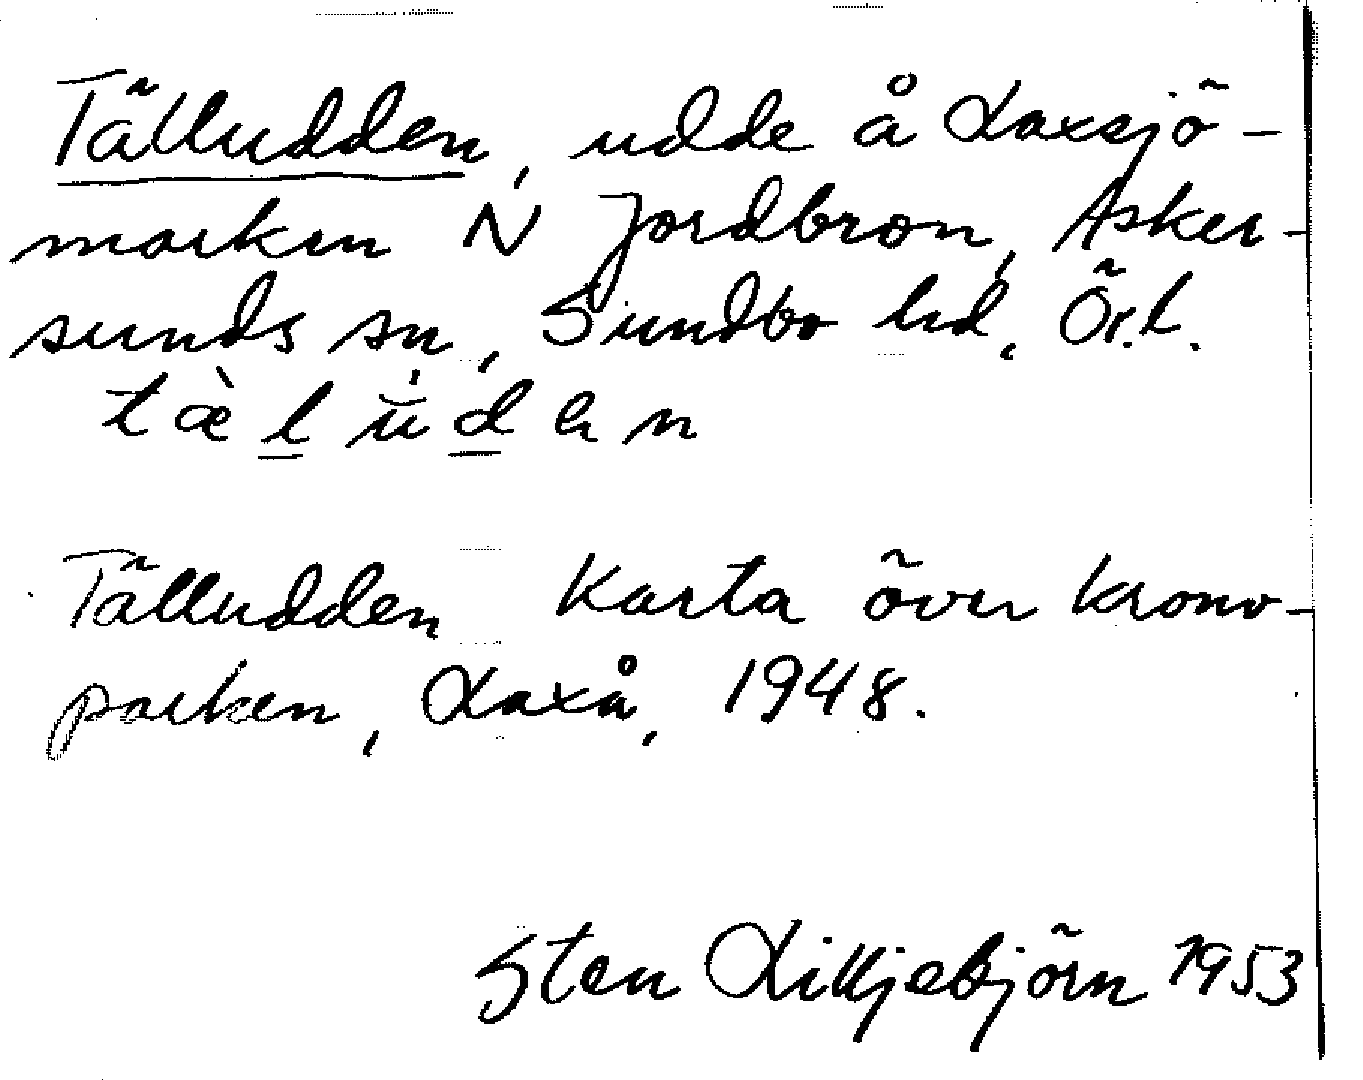 Tälludden, udde å Laxsjö-
marken N Jordbron, Asker-
sunds sn, Sundbo hd, Ör.l.
tæ̀lu̇dən
Tälludden Karta över krono-
parken, Laxå, 1948.
Sten Lilljebjörn 1953